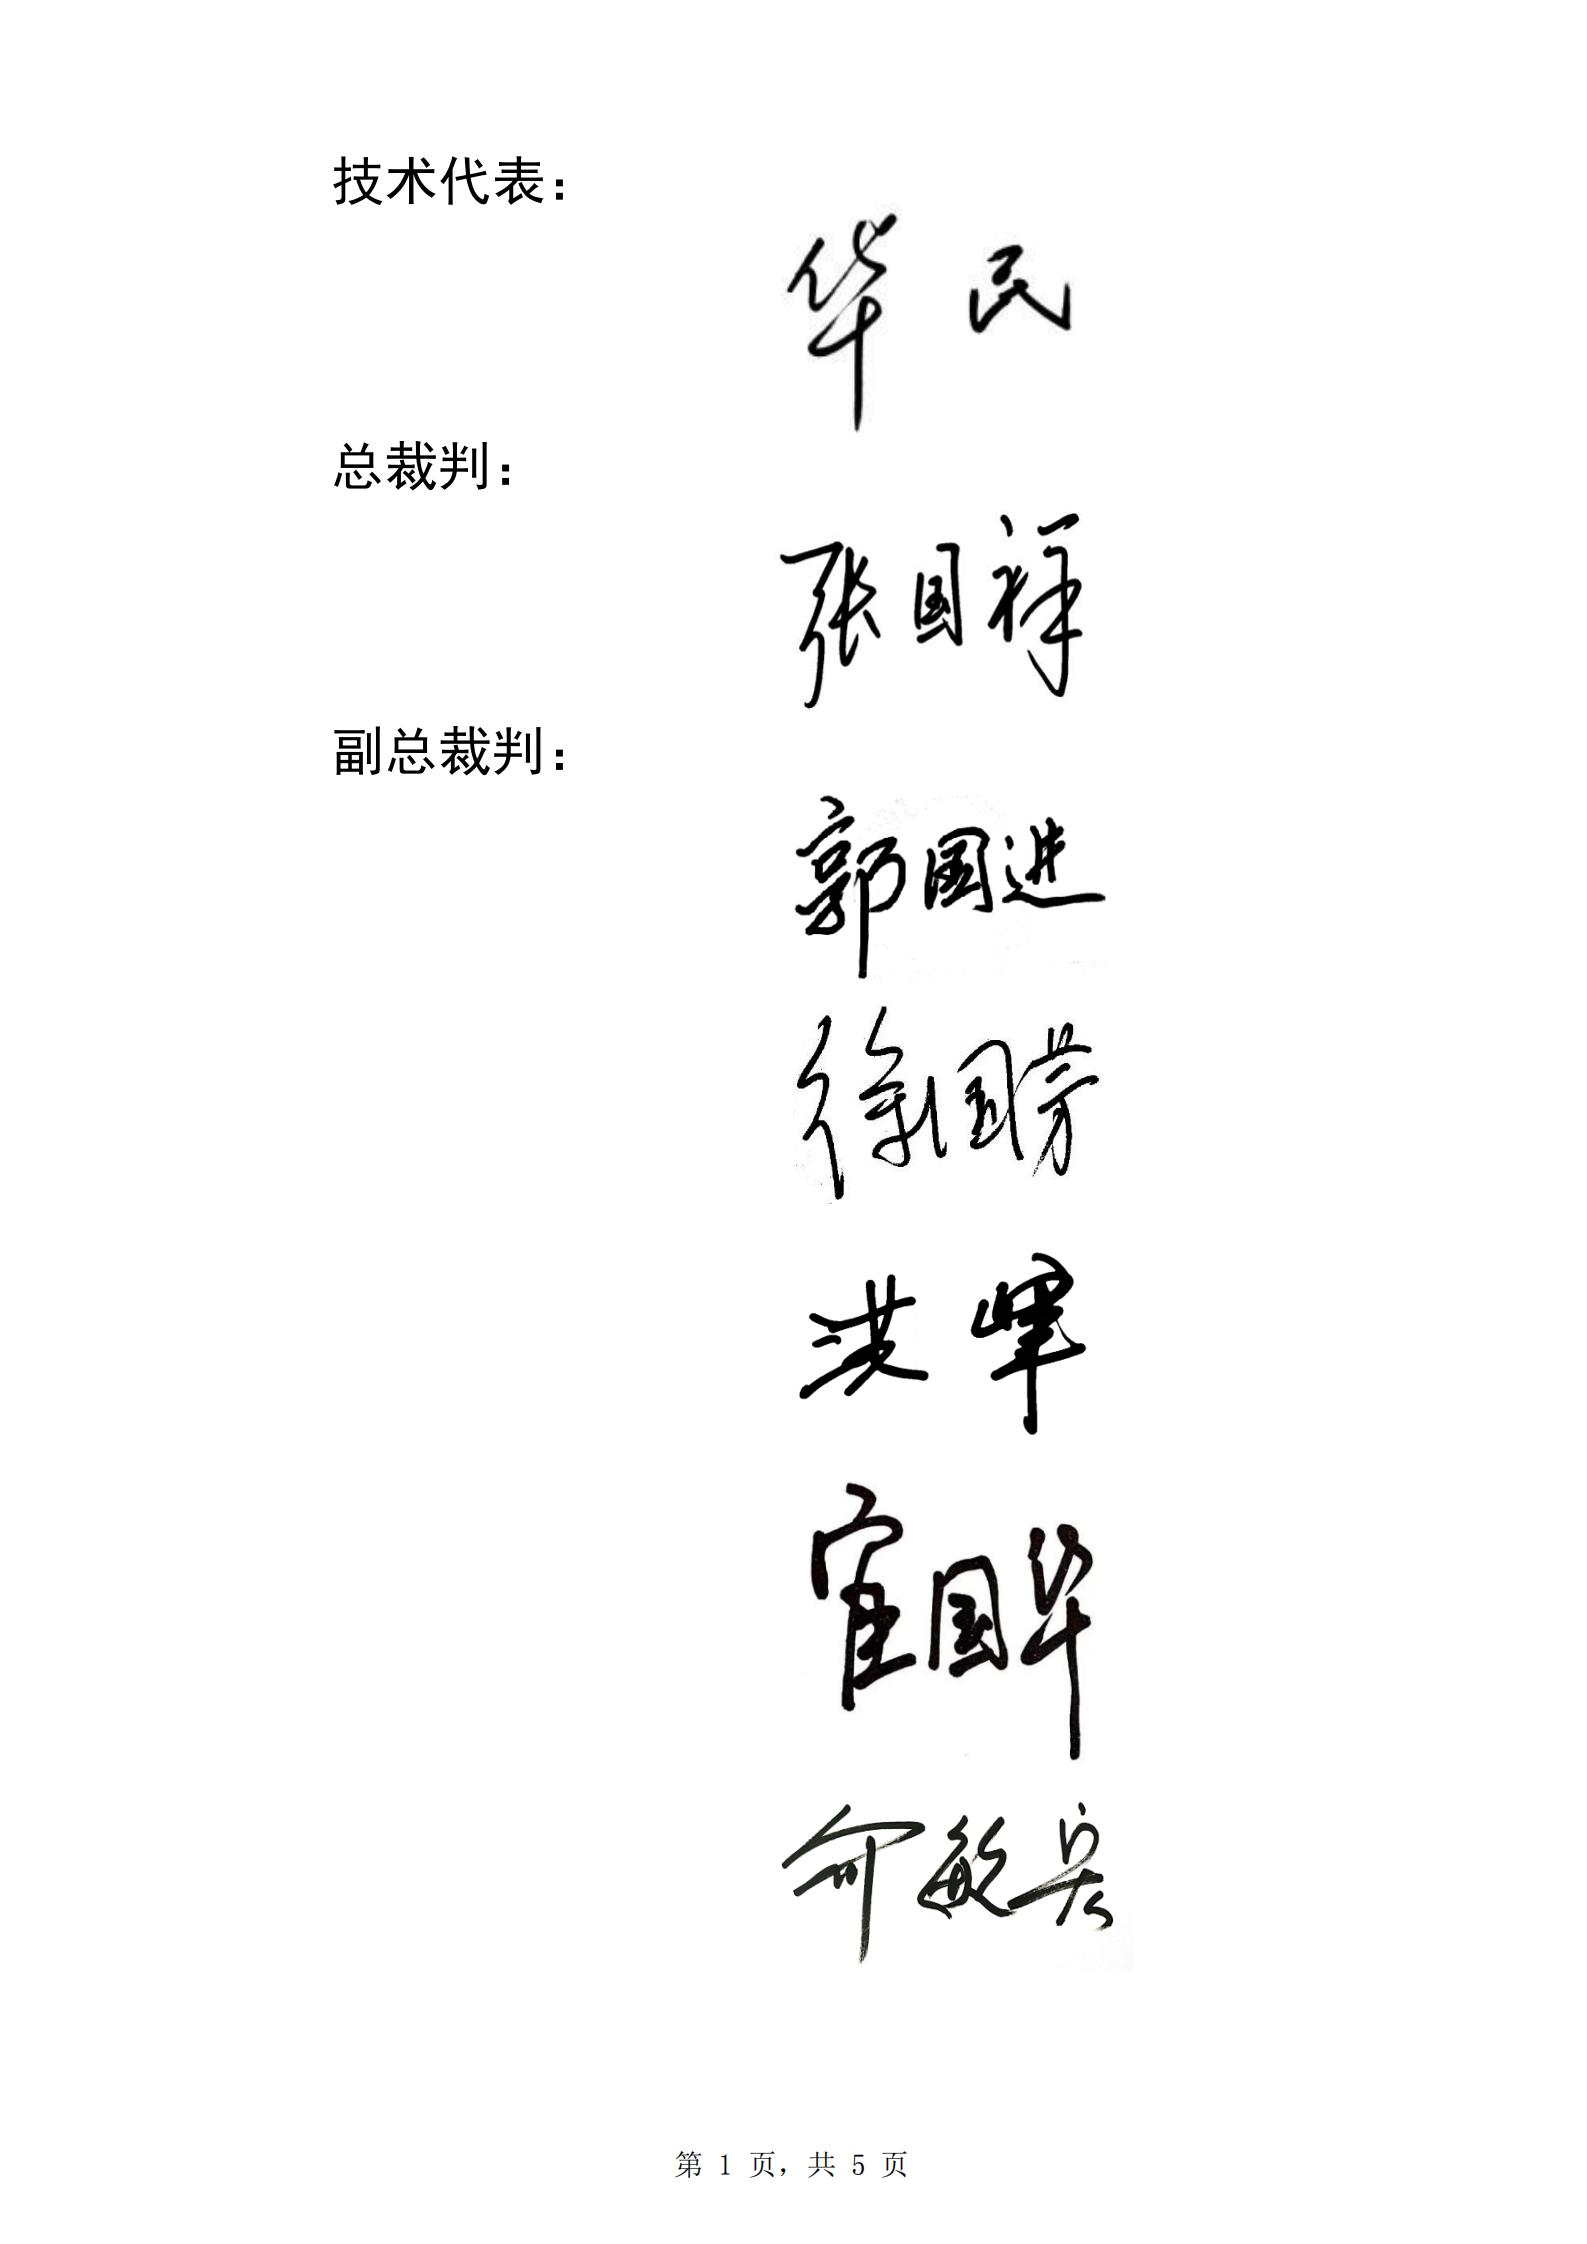 技术代表：
华 民
总裁判：
张国祥
副总裁判：
郭国进
徐国芳
洪峰
宦国华
俞敏兵
第 1 页，共 5 页